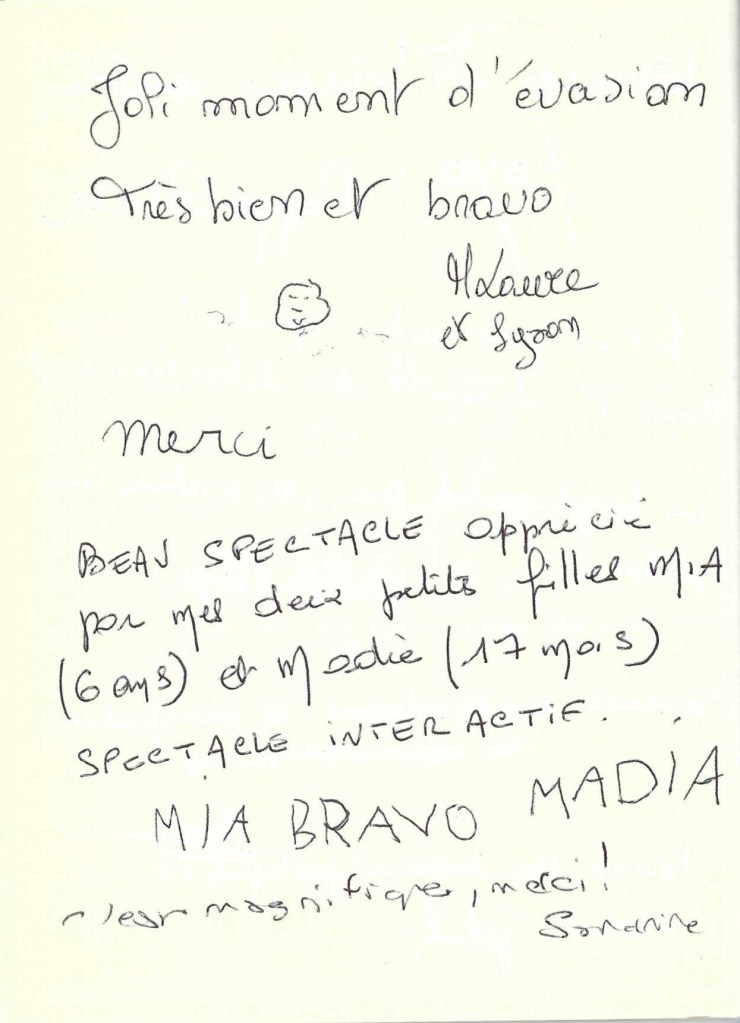 Joli moment d'évasion
Très bien et bravo
MLaure
et Syson
Merci
BEAU SPECTACLE apprécié
par mes deux petits filles MIA
(6 ans) et Madie (17 mois)
SPECTACLE INTERACTIF.
MIA BRAVO MADIA
magnifique, merci!
Sandrine